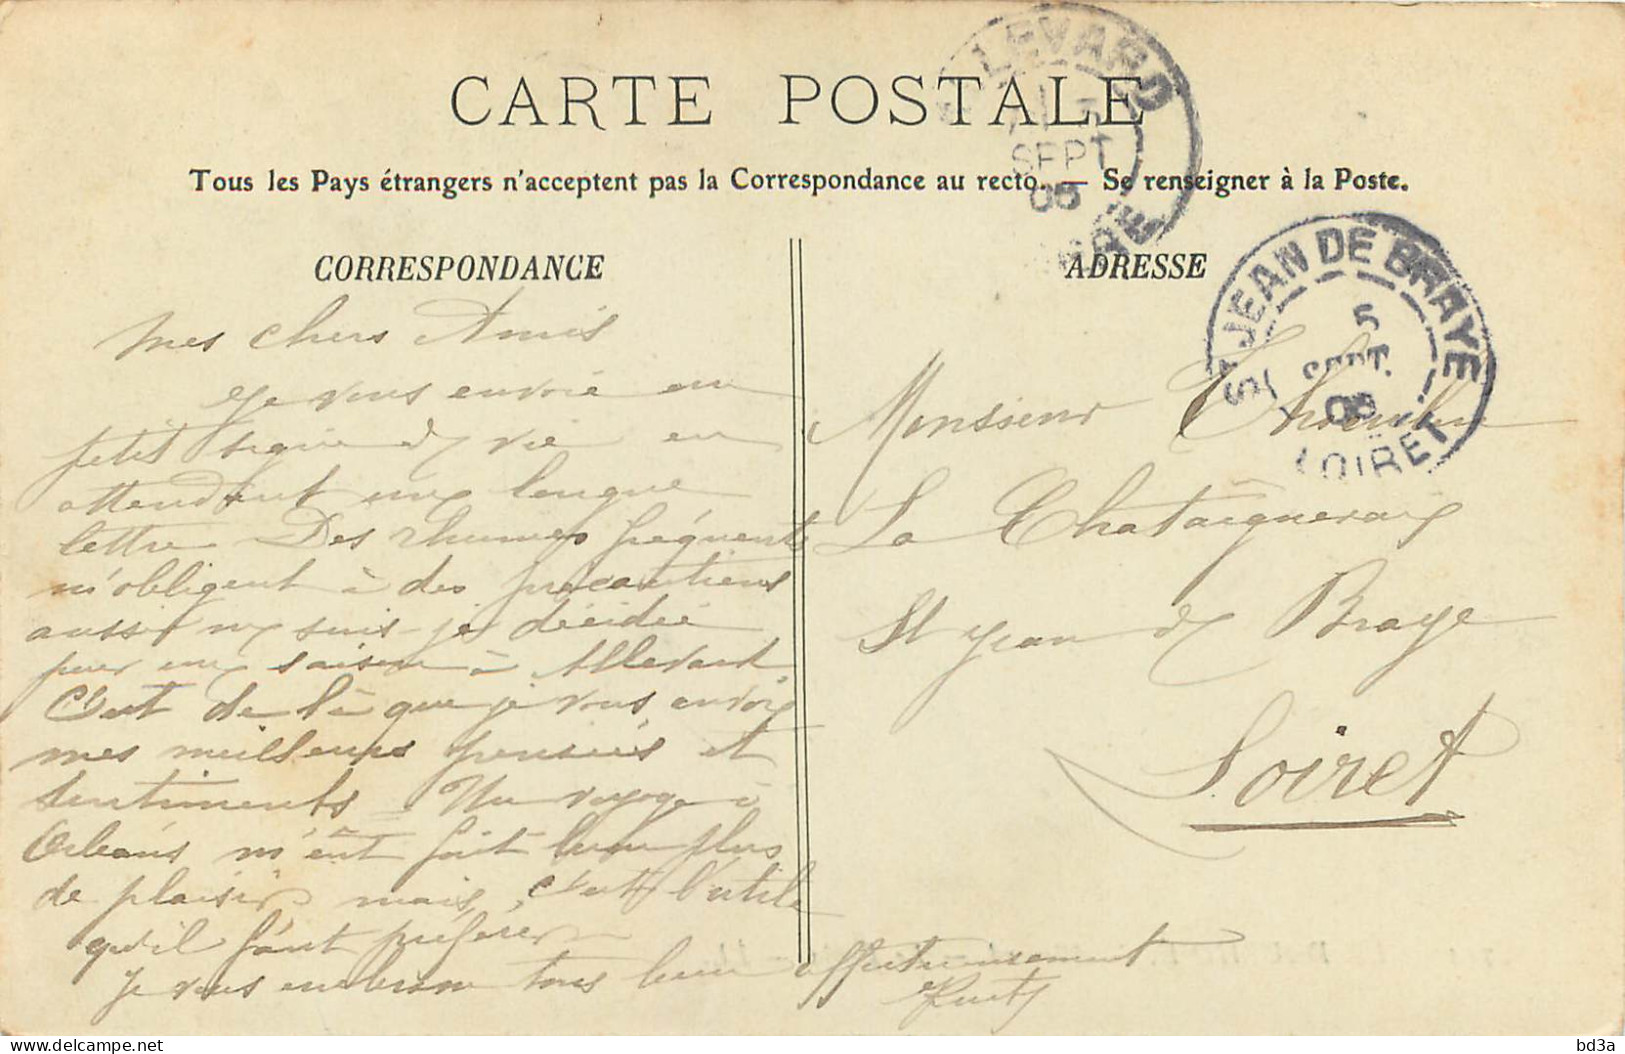 CARTE POSTALE
Tous les Pays étrangers n'acceptent pas la Correspondance au recto. — Se renseigner à la Poste.
CORRESPONDANCE
mes chers Amis
Je vous envoie un
petit signe de vie en
attendant une longue
lettre Des rhumes fréquents
m'obligent à des précautions
aussi me suis-je décidée
pour une saison à Allevard
C'est de là que je vous envoie
mes meilleures pensées et
sentiments Un voyage à
Orléans m'eût fait bien plus
de plaisir mais, c'est l'utile
qu'il faut préférer
Je vous embrasse tous bien affectueusement
ADRESSE
Monsieur
La Chataigneraie
St Jean de Braye
Loiret
LEVARD
SEPT
05
ST JEAN DE BRAYE
5
SEPT.
05
LOIRET
delcampe.net
bd3a